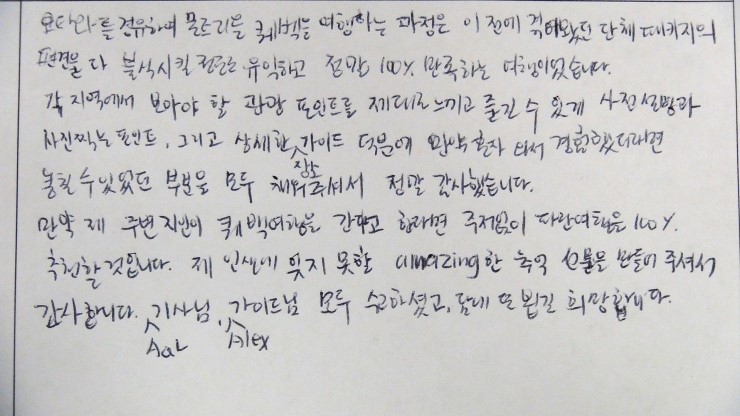 오타와를 경유하여 몬트리올 퀘벡을 여행하는 과정은 이전에 겪어왔던 단체 패키지의
편견을 다 불식시킬 정도로 유익하고 정말 100% 만족하는 여행이었습니다.
각 지역에서 보아야 할 관광 포인트를 제대로 느끼고 즐길 수 있게 사전 설명과
사진찍는 포인트, 그리고 상세한 가이드 덕분에 만약 혼자 와서 경험했더라면
장소
놓칠 수 있었던 부분을 모두 채워주셔서 정말 감사했습니다.
만약 제 주변 지인이 퀘벡여행을 간다고 한다면 주저없이 파란여행을 100%
추천할 것입니다. 제 인생에 잊지 못할 amazing한 추억 선물을 만들어 주셔서
감사합니다. 기사님, 가이드님 모두 수고하셨고, 담에 또 뵙길 희망합니다.
Alex